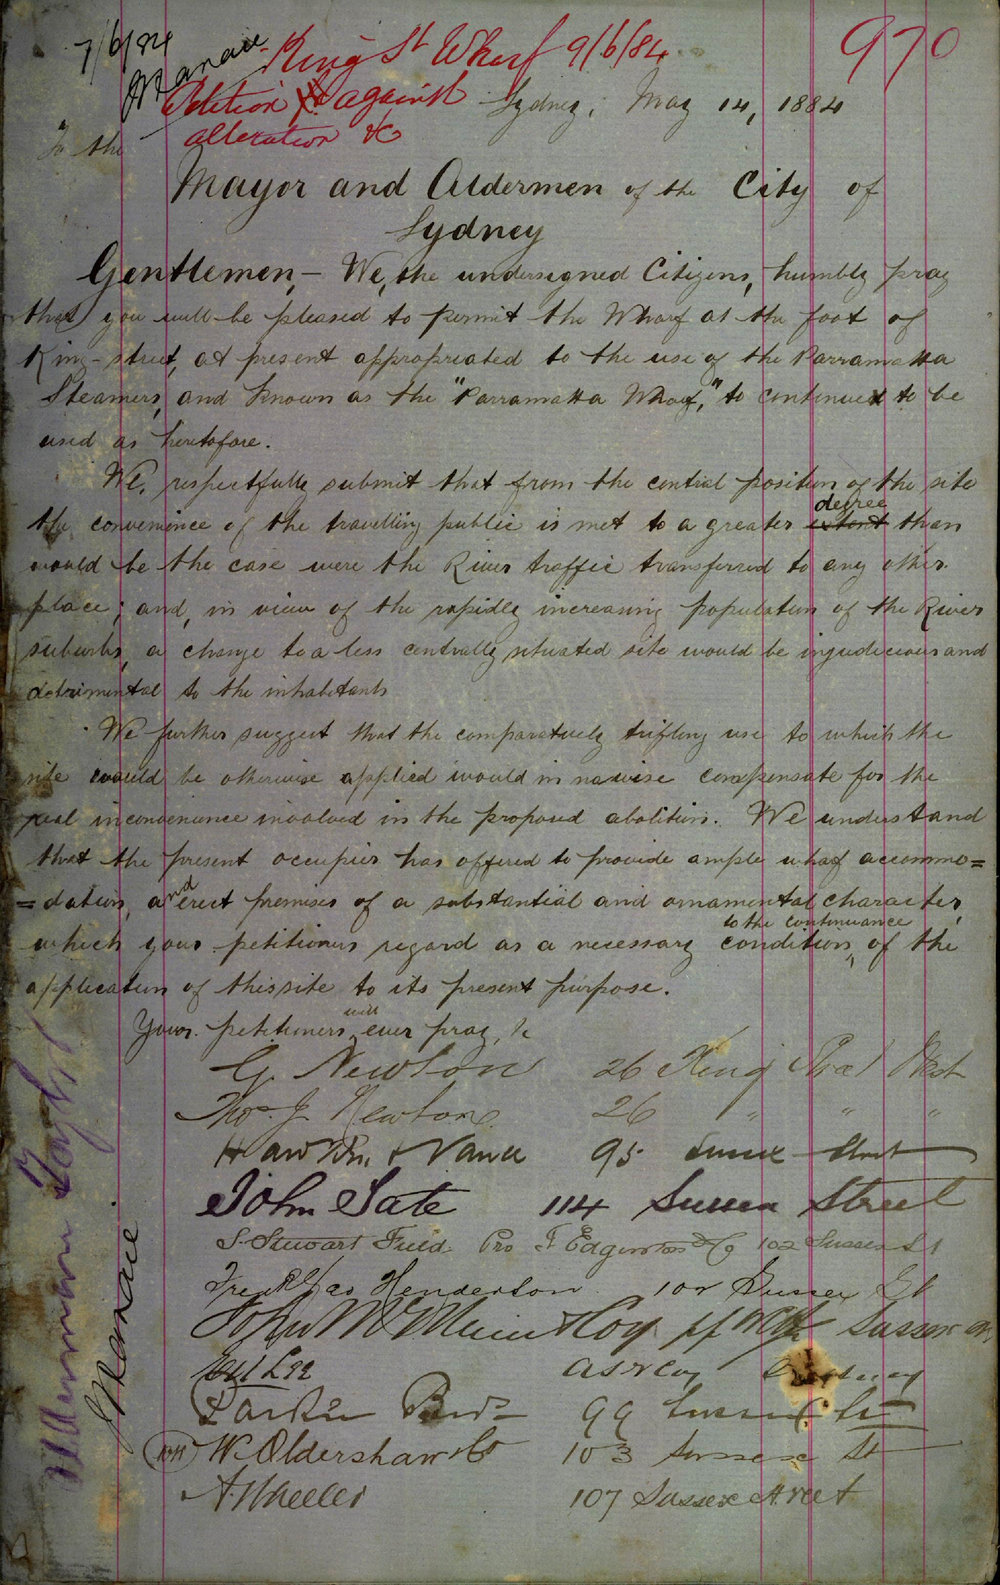 7/6/84
Manae
King St Wharf 9/6/84
970
Petition against
alteration &c
Sydney, May 14, 1884
To the
Mayor and Aldermen of the City of
Sydney
Gentlemen, – We, the undersigned Citizens, humbly pray
that you will be pleased to permit the Wharf at the foot of
King-street, at present appropriated to the use of the Parramatta
Steamers, and known as the "Parramatta Wharf," to continue to be
used as heretofore.
We, respectfully submit that from the central position of the site
the convenience of the travelling public is met to a greater extent degree than
would be the case were the River traffic transferred to any other
place; and, in view of the rapidly increasing population of the River
suburbs, a change to a less centrally situated site would be injudicious and
detrimental to the inhabitants
We further suggest that the comparatively trifling use to which the
site would be otherwise applied would in nowise compensate for the
real inconvenience involved in the proposed abolition. We understand
that the present occupier has offered to provide ample wharf accommo=
=dation, and erect premises of a substantial and ornamental character,
which your petitioners regard as a necessary condition, to the continuance of the
application of this site to its present purpose.
Your petitioners will ever pray, &c
G. Newton 26 King Street West
Thos. J. Newton 26 " " "
& Vance 95 Sussex Street
John Tate 114 Sussex Street
S. Stewart Field Pro F Edgerton & Co 102 Sussex St
Henderson 102 Sussex St
John & Coy Sussex St
Lee ASN Coy Sydney
Parker Bros 99 Sussex St
W. Oldershaw & Co 103 Sussex St
A. Wheeler 107 Sussex Street
Alderman Taylor